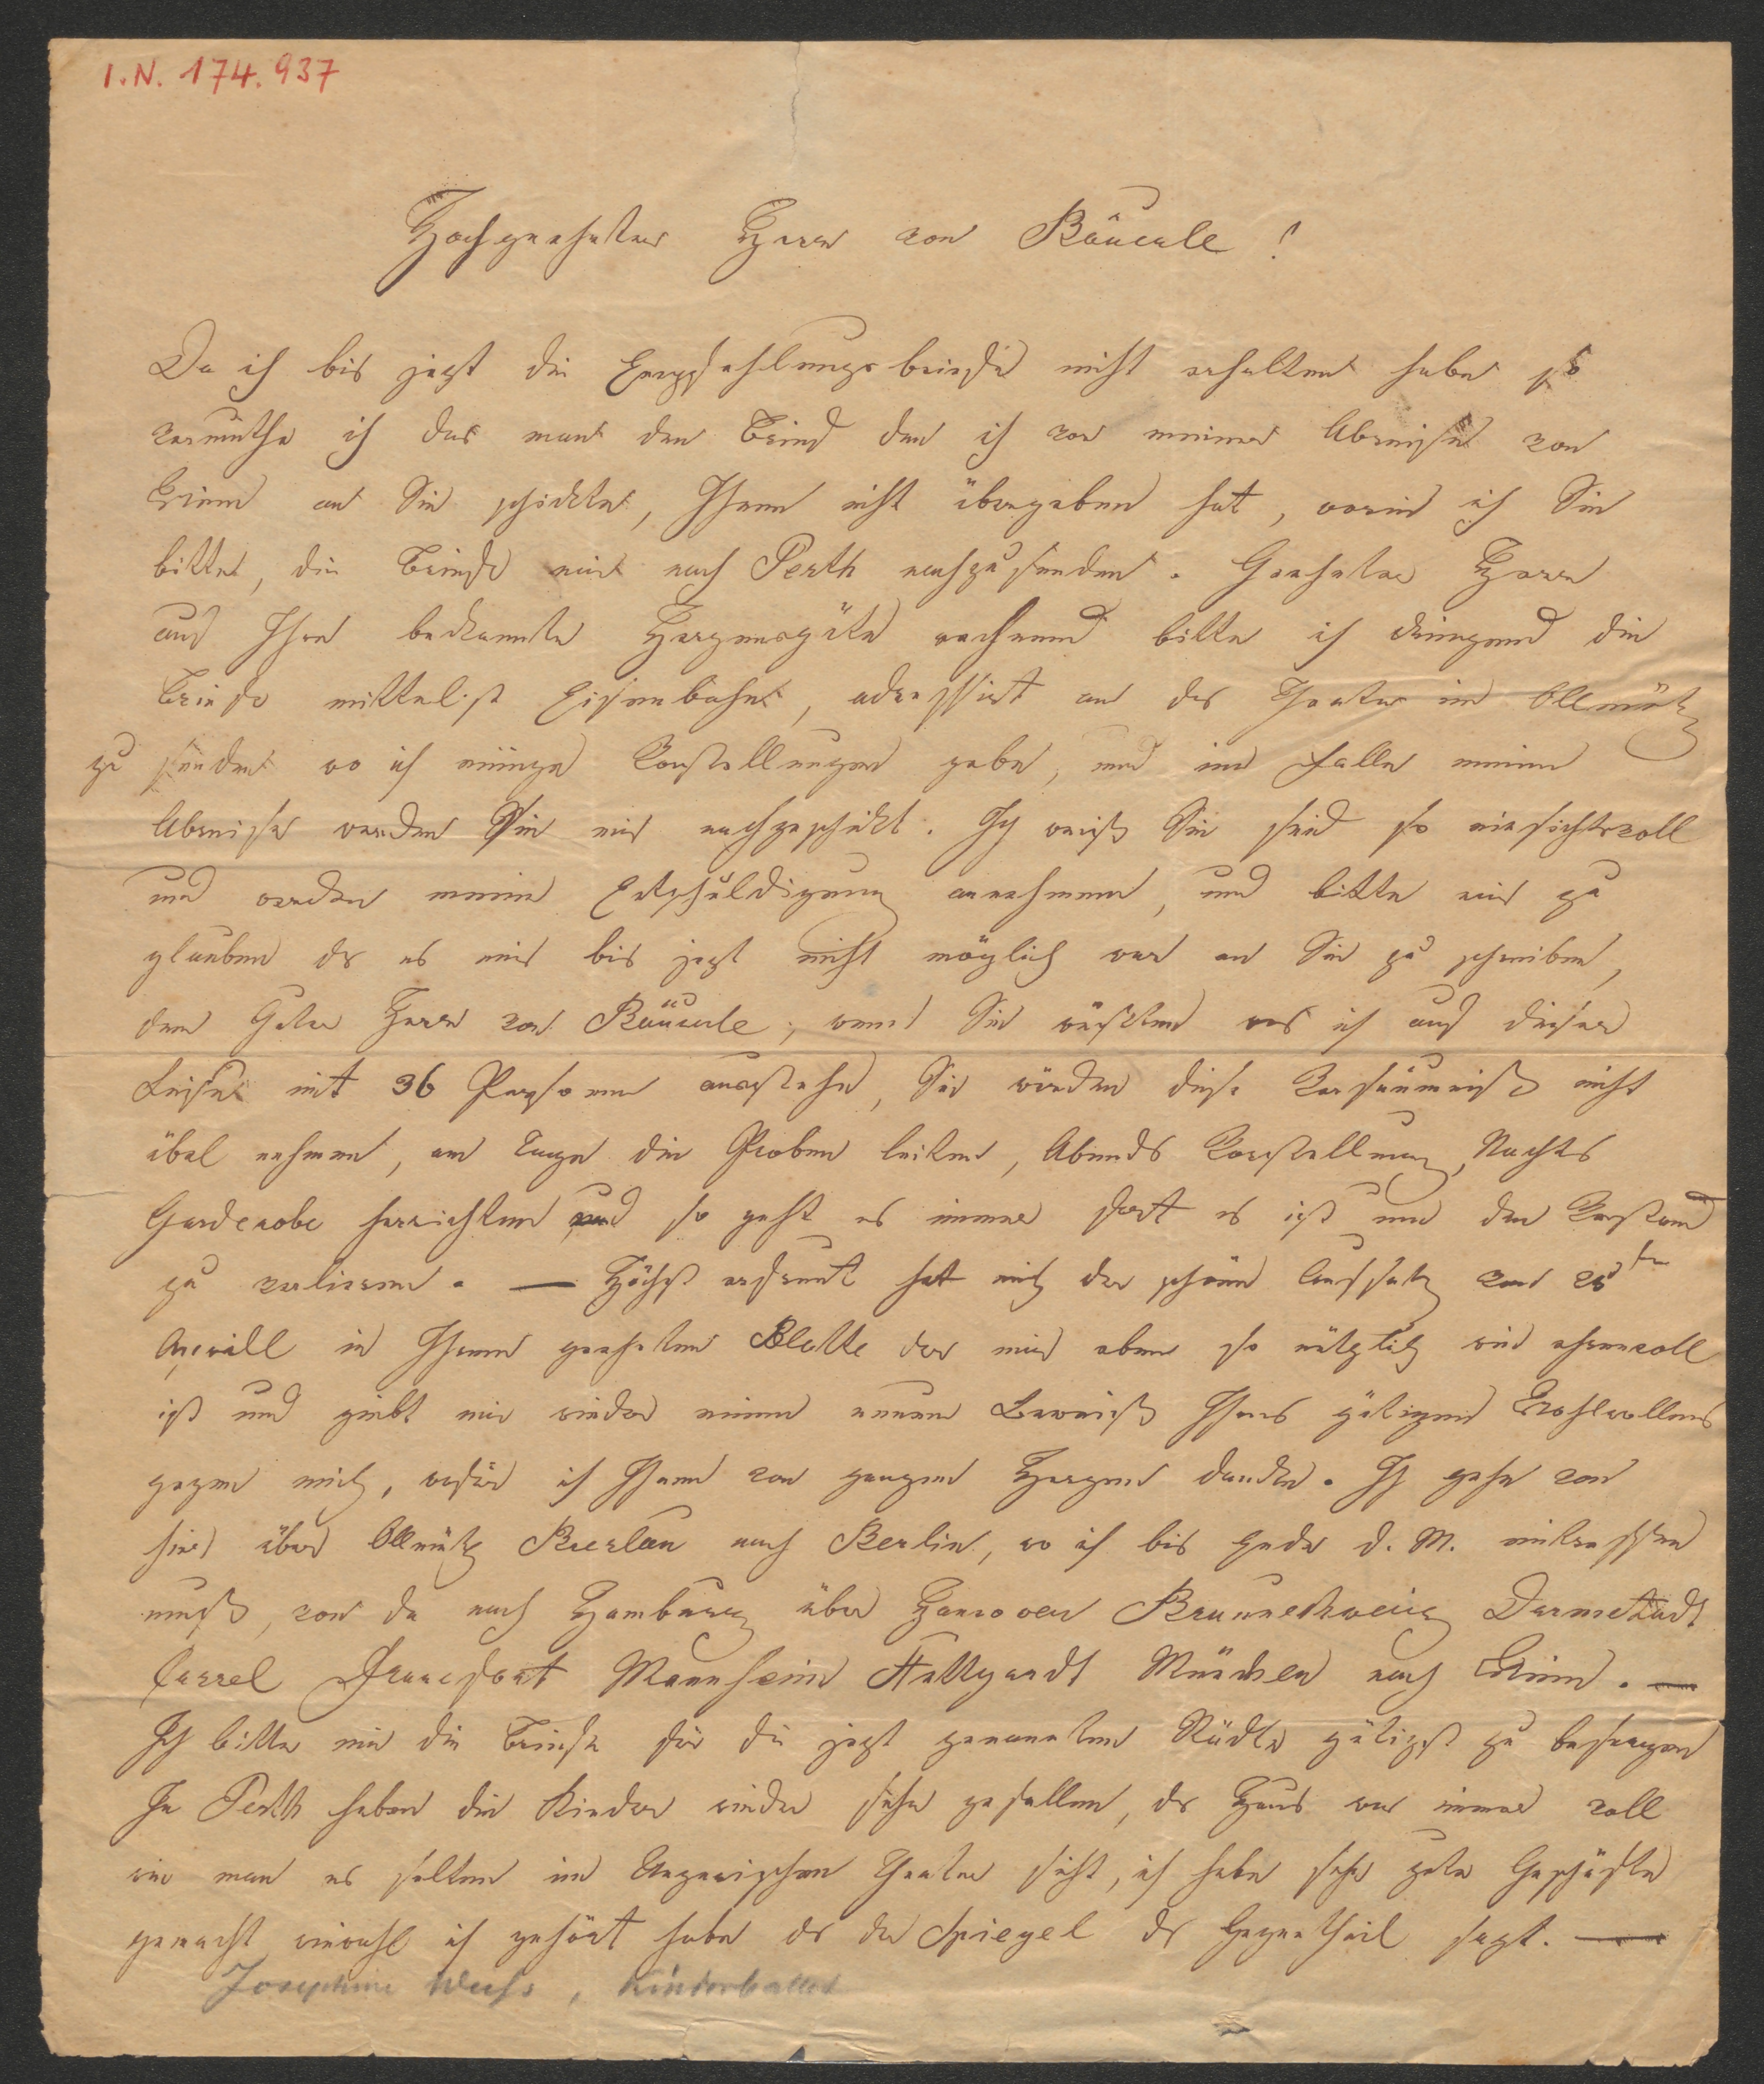 I.N. 174.937
Hochgeehrter Herr von Bäuerle!
Da ich bis jezt die Empfehlungsbriefe nicht erhalten habe so
vermuthe ich das man den Brief den ich vor meiner Abreise von
Wien an Sie schickte, Ihnen nicht übergeben hat, worin ich Sie
bitte, die Briefe mir nach Pesth nachzusenden. Geehrter Herr
auf Ihre bekannte Herzensgüte rechnend bitte ich dringend die
Briefe mittelst Eisenbahn, adressirt an das Theater in Ollmütz
zu senden wo ich einige Vorstellungen gebe, und im Falle meiner
Abreise werden Sie mir nachgeschickt. Ich weiß Sie sind so einsichtsvoll
und werden meine Entschuldigung annehmen, und bitte mir zu
glauben das es mir bis jezt nicht möglich war an Sie zu schreiben,
den Guter Herr von Bäuerle, wenn Sie wüsten was ich auf dieser
Reise mit 36 Personen ausstehe, Sie würden diese Versäumniß nicht
übel nehmen, am Tage die Proben leiten, Abends Vorstellung, Nachts
Garderobe herrichten und so geht es immer fort es ist um den Verstand
zu verlieren. — Höchst erfreut hat mich der schöne Aufsatz vom
Aprill in Ihrem geehrten Blatte der mir eben so nützlich wie ehrenvoll
ist und giebt mir wieder einen neuen Beweiß Ihres gütigen Wohlwollens
gegen mich, wofür ich Ihnen von ganzem Herzen danke. Ich gehe von
hier über Ollmütz Breslau nach Berlin, wo ich bis Ende d. M. eintreffen
muß, von da nach Hamburg über Hanover Braunschweig Darmstadt
Cassel Francfort Mannheim Stuttgardt München nach Wien. —
Ich bitte mir die Briefe für die jezt genannten Städte gütigst zu besorgen
In Pesth haben die Kinder wieder sehr gefallen, das Haus war immer voll
wie man es selten im Ungarischen Theater sieht, ich habe sehr gute Geschäfte
gemacht wiewohl ich gehört habe das der Spiegel das Gegentheil sagt. —
Josephine Weiss, Kinderballet